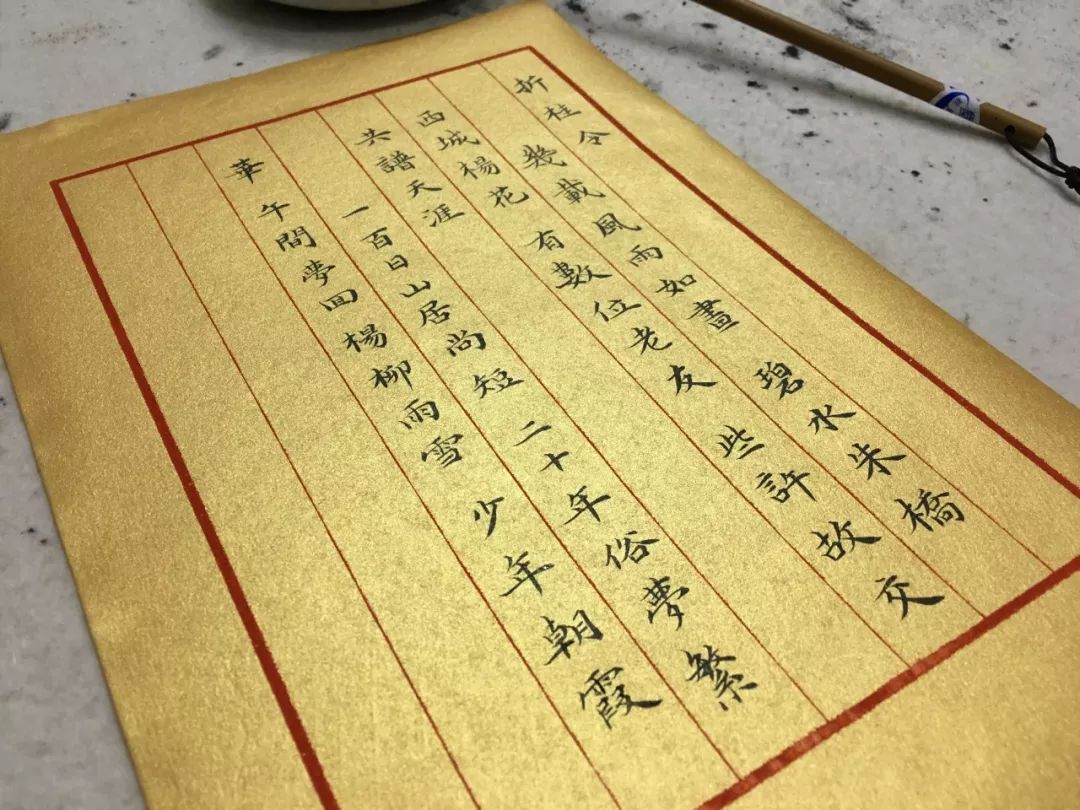 折桂令
幾載風雨如畫 碧水朱橋
西城楊花 有數位老友 些許故交
共譜天涯
一百日山居尚短 二十年俗夢繁
華 午間夢回楊柳雨雪 少年朝霞